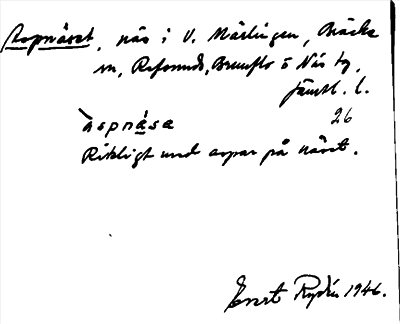 Aspnäset, näs i V. Mårlingen, Bräcke
sn, Refsunds, Brunflo o Näs tg,
Jämtl. l.
àspnása 26
Rikligt med aspar på näset.
Evert Rydén 1946.